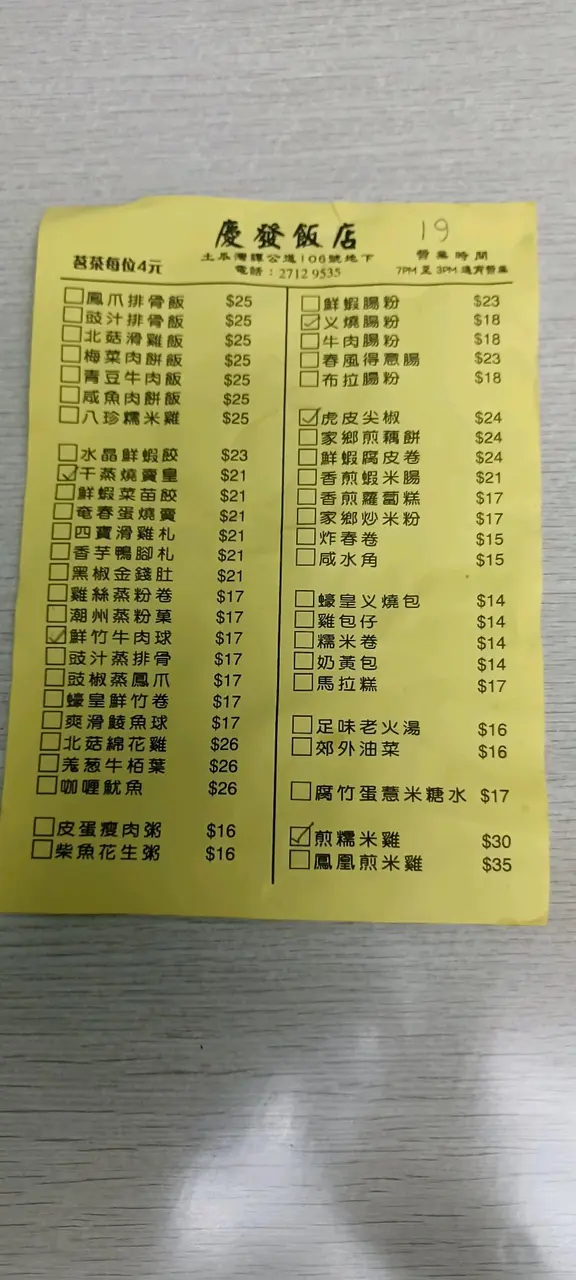 慶發飯店
19
土瓜灣譚公道106號地下
電話：2712 9535
茗茶每位4元
營業時間
7PM 至 3PM 通宵營業
鳳爪排骨飯 $25
豉汁排骨飯 $25
北菇滑雞飯 $25
梅菜肉餅飯 $25
青豆牛肉飯 $25
咸魚肉餅飯 $25
八珍糯米雞 $25
水晶鮮蝦餃 $23
干蒸燒賣皇 $21
鮮蝦菜苗餃 $21
奄春蛋燒賣 $21
四寶滑雞札 $21
香芋鴨腳札 $21
黑椒金錢肚 $21
雞絲蒸粉卷 $17
潮州蒸粉菓 $17
鮮竹牛肉球 $17
豉汁蒸排骨 $17
豉椒蒸鳳爪 $17
蠔皇鮮竹卷 $17
爽滑鯪魚球 $17
北菇綿花雞 $26
羗葱牛栢葉 $26
咖喱魷魚 $26
皮蛋瘦肉粥 $16
柴魚花生粥 $16
鮮蝦腸粉 $23
义燒腸粉 $18
牛肉腸粉 $18
春風得意腸 $23
布拉腸粉 $18
虎皮尖椒 $24
家鄉煎藕餅 $24
鮮蝦腐皮卷 $24
香煎蝦米腸 $21
香煎蘿蔔糕 $17
家鄉炒米粉 $17
炸春卷 $15
咸水角 $15
蠔皇义燒包 $14
雞包仔 $14
糯米卷 $14
奶黃包 $14
馬拉糕 $17
足味老火湯 $16
郊外油菜 $16
腐竹蛋薏米糖水 $17
煎糯米雞 $30
鳳凰煎米雞 $35